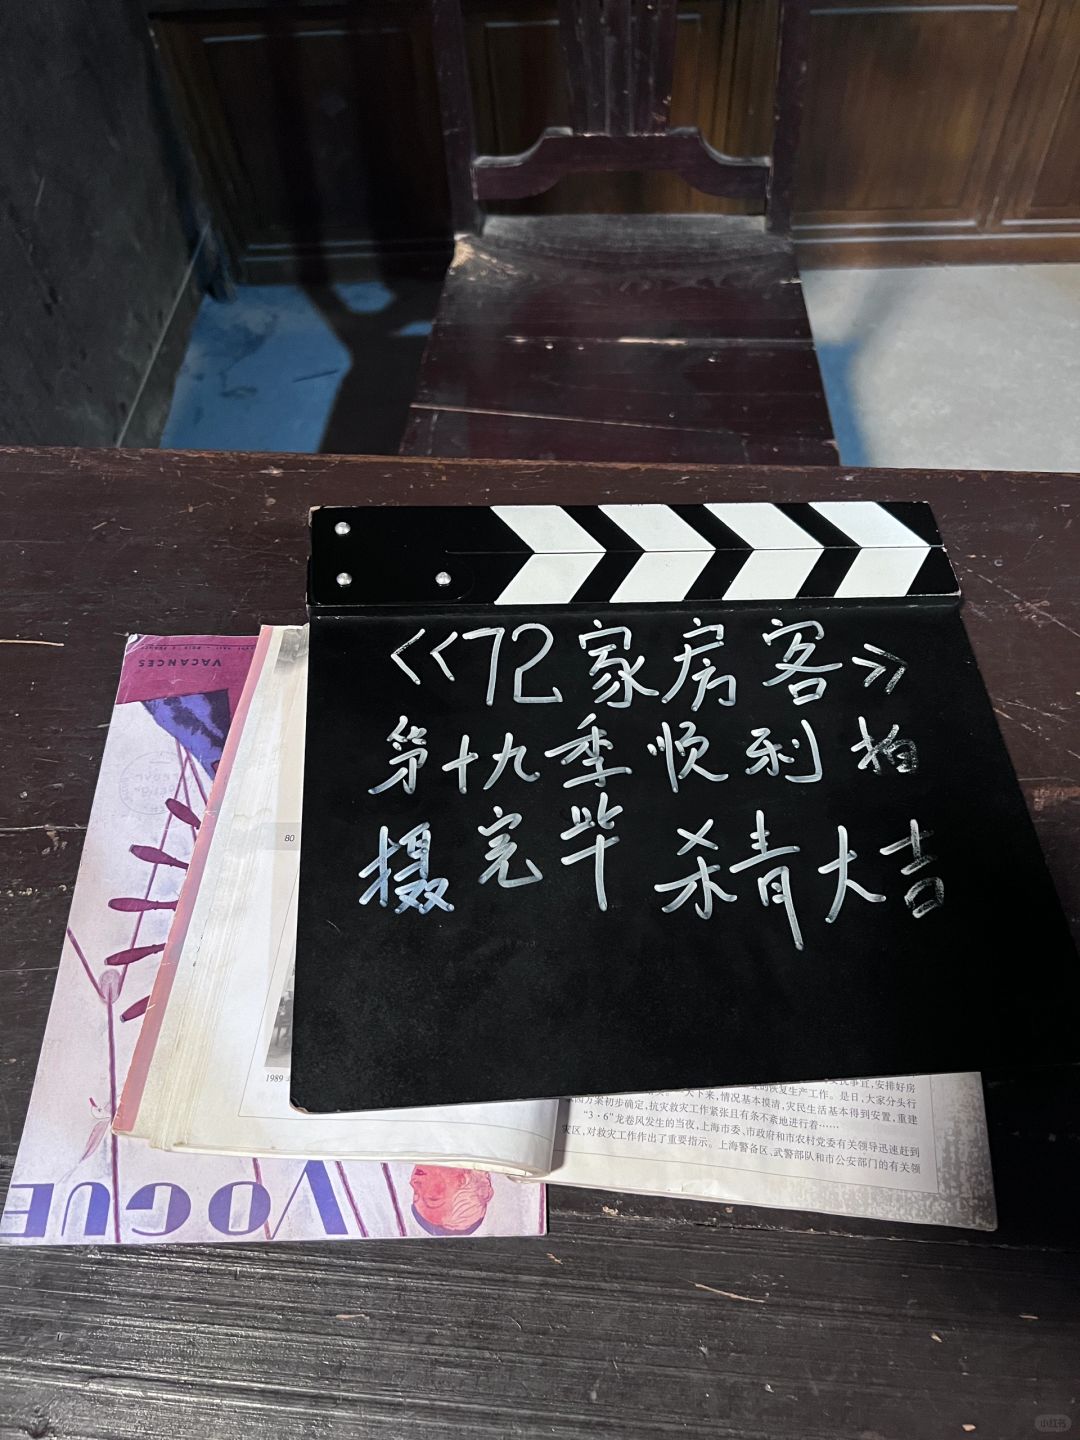 《72家房客》
第十九季顺利拍
摄完毕 杀青大吉
VACANCES
80
1989
的恢复生产工作。是日,大家分头行
下来,情况基本摸清,灾民生活基本得到安置,重建
方案初步确定,抗灾救灾工作紧张且有条不紊地进行着……
“3·6”龙卷风发生的当夜,上海市委、市政府和市农村党委有关领导迅速赶到
灾区,对救灾工作作出了重要指示。上海警备区、武警部队和市公安部门的有关领
VOGUE
小红书